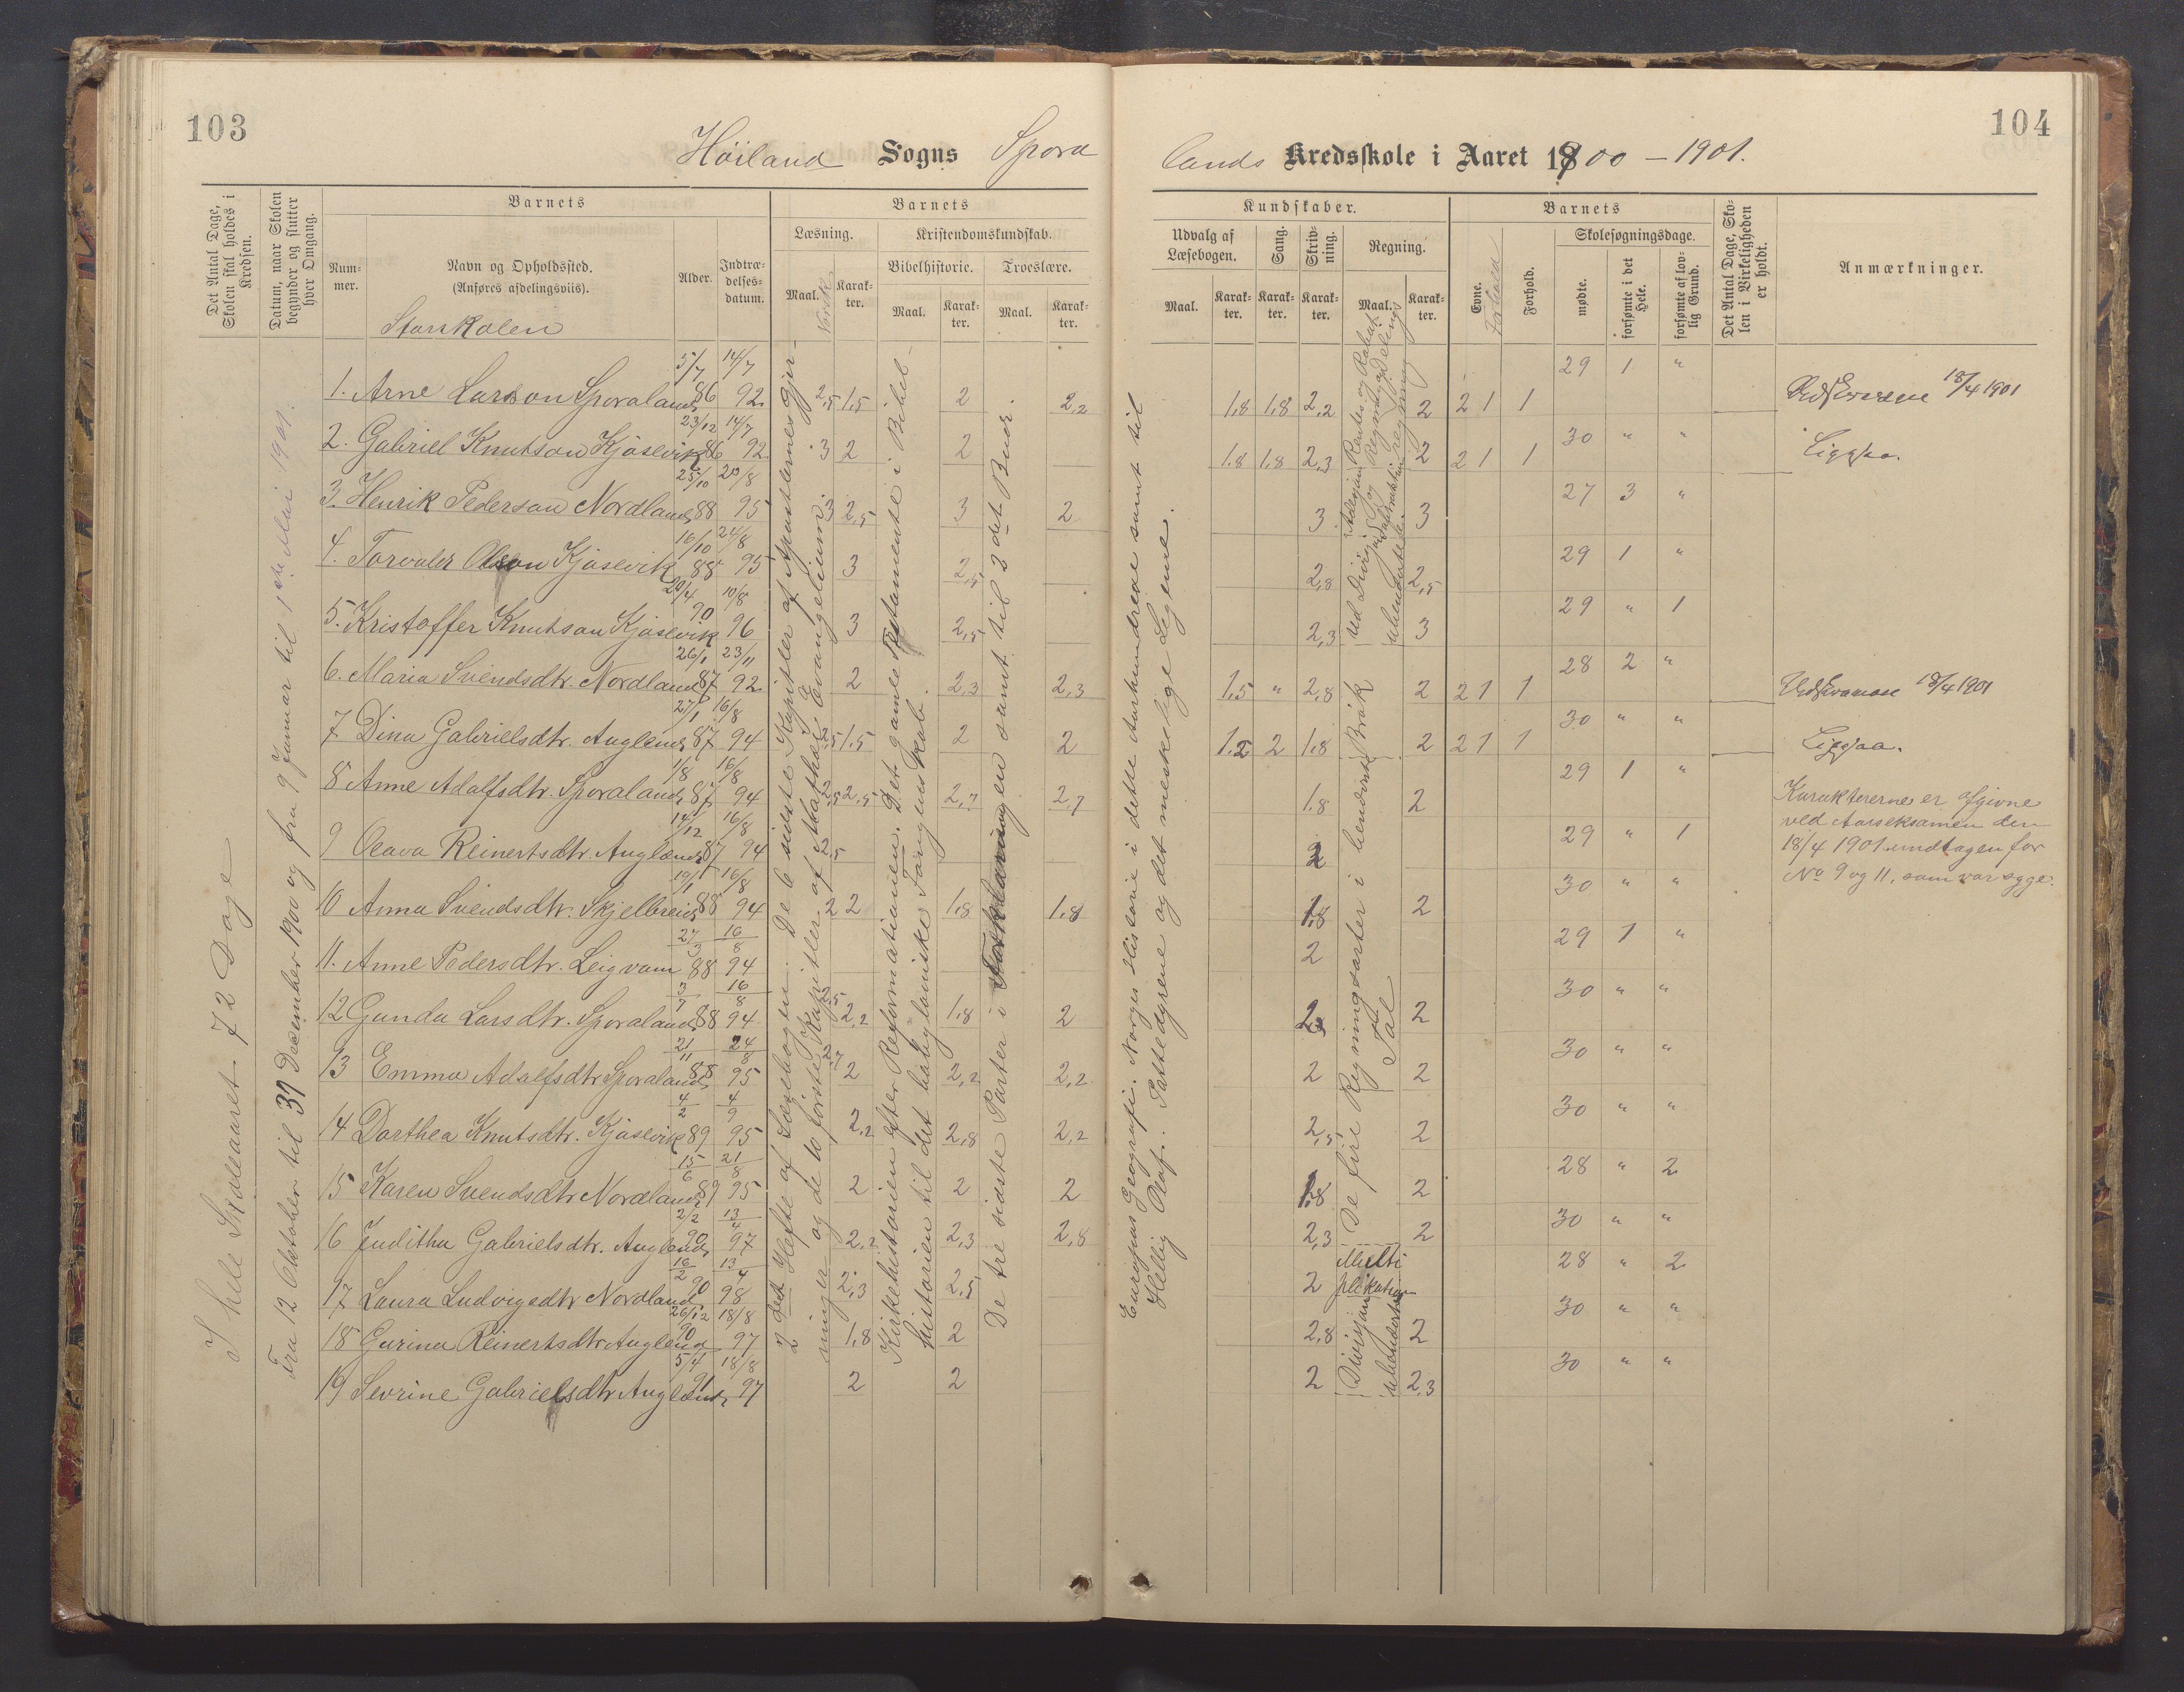 103
104
Høiland Sogns Spora
lands Kredsskole i Aaret 1900 – 1901.
Det Antal Dage, Skolen skal holdes i Kredsen.
Datum, naar Skolen begynder og slutter hver Omgang.
Barnets
Num-mer.
Navn og Opholdssted.
(Anføres afdelingsviis).
Storskolen
Alder.
Indtræ-delses-datum.
Barnets
Læsning.
Maal.
Norsk
Karak-ter.
Kristendomskundskab.
Bibelhistorie.
Maal.
Karak-ter.
Troeslære.
Maal.
Karak-ter.
Kundskaber.
Udvalg af Læsebogen.
Maal.
Karak-ter.
Sang.
Karak-ter.
Skriv-ning.
Karak-ter.
Regning.
Maal.
Karak-ter.
Barnets
Evne.
Forhold.
Skolesøgningsdage.
mødte.
forsømte i det Hele.
forsømte af lov-lig Grund.
Det Antal Dage, Sko-len i Virkeligheden er holdt.
Anmærkninger.
I hele Skoleaaret 72 Dage
Fra 12 Oktober til 31 December 1900 og fra 9 Januar til 1ste Mai 1901.
1. Arne Larson Sporaland 5/7 86 14/7 92 2,5 1,5 2 2,2 1,8 1,8 2,2 2 2 1 1 29 1 "
2. Gabriel Knutson Kjosevik 23/12 86 14/7 92 3 2 2 1,8 1,8 2,3 2 2 1 1 30 " "
3. Henrik Pederson Nordland 25/10 88 21/8 95 3 2,5 3 2 3 3 27 3 "
4. Torvald Olson Kjosevik 16/10 88 24/8 95 3 2,5 2,8 2,5 29 1 "
5. Kristoffer Knutson Kjosevik 20/4 90 10/8 96 3 2,5 2,3 3 29 " 1
6. Maria Svendsdtr. Nordland 26/1 87 23/11 92 2 2,3 2,3 1,5 " 2,8 2 2 1 1 28 2 "
7 Dina Gabrielsdtr. Auglend 27/1 87 16/8 94 2,5 1,5 2 2 1,2 2 1,8 2 2 1 1 30 " "
8 Anne Adolfsdtr. Sporaland 1/8 87 16/8 94 2,5 2,5 2,7 2,7 1,8 2 29 1 "
9 Olava Reinertsdtr. Auglend 14/12 87 16/8 94 2,5 2 29 " 1
10 Anna Svendsdtr. Skjelbreid 19/1 88 16/8 94 2 2 1,8 1,8 1,8 2 30 " "
11. Anne Pedersdtr. Leigvam 27/3 88 16/8 94 2 29 1 "
12 Gunda Larsdtr. Sporaland 3/7 88 16/8 94 2,5 2,2 1,8 2 2,3 2 30 " "
13 Emma Adolfsdtr Sporaland 21/11 88 24/8 95 2,7 2 2,2 2,2 2 2 30 " "
14 Dorthea Knutsdtr. Kjosevik 4/2 89 4/9 95 2,2 2,8 2,2 2,5 2 30 " "
15 Karen Svendsdtr Nordland 15/6 89 21/8 95 2 2 2 1,8 2 28 " 2
16 Juditha Gabrielsdtr. Auglend 2/2 90 13/4 97 2,2 2,3 2,8 2,3 2 30 " "
17 Laura Ludvigsdtr Nordland 16/2 90 13/4 98 2,3 2,5 2 28 " 2
18 Gurina Reinertsdtr Auglend 26/12 90 18/8 97 1,8 2 2,8 2 30 " "
19 Sevrine Gabrielsdtr Auglend 5/4 91 18/8 97 2 2 2 2,3 30 " "
2 det Hefte af Læsebogen. De 6 sidste Kapitler af Apostlernes Gjer-
ninger og de 10 første Kapitler af Mathæi Evangelium.
Kirkehistorien efter Reformationen. Det gamle Testamente i Bibel-
historien til det babyloniske Fangenskab.
De tre sidste Parter i Forklaringen samt til 2 det Buer.
Europas Geografi. Norges Historie i dette Aarhundrede samt til
Hellig Olaf. Pattedyrene og det meskelige Legeme.
De fire Regningsarter i benævnte
Tal
Brøk
Multi
plikation
Division
18/4 1901
18/4 1901
Karaktererne er afgivne
ved Aarseksamen den
18/4 1901 undtagen for
No 9 og 11, som var syge.